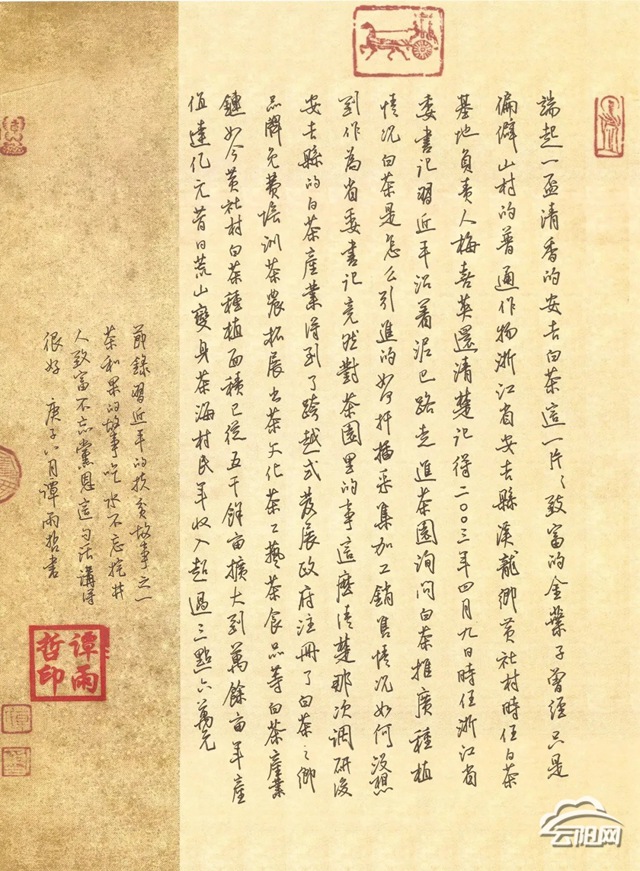 端起一盃清香的安吉白茶這一片々致富的金葉子曾經只是
偏僻山村的普通作物浙江省安吉縣溪龍鄉黃杜村時任白茶
基地負責人梅喜英還清楚記得二〇〇三年四月九日時任浙江省
委書記習近平沿著泥巴路走進茶園詢問白茶推廣種植
情況白茶是怎么引進的如何扦插采集加工銷售情況如何沒想
到作為省委書記竟然對茶園里的事這麽清楚那次調研後
安吉縣的白茶產業得到了跨越式發展政府注冊了白茶之鄉
品牌免費培训茶農拓展出茶文化茶工藝茶食品等白茶產業
鏈如今黃杜村白茶種植面積已從五千餘亩擴大到萬餘亩年產
值達亿元昔日荒山變身茶海村民年收入超過三點六萬元
節錄習近平的扶貧故事之一
茶和果的故事吃水不忘挖井
人致富不忘黨恩這句話講得
很好 庚子八月譚雨哲書
谭雨
哲印
云阳网